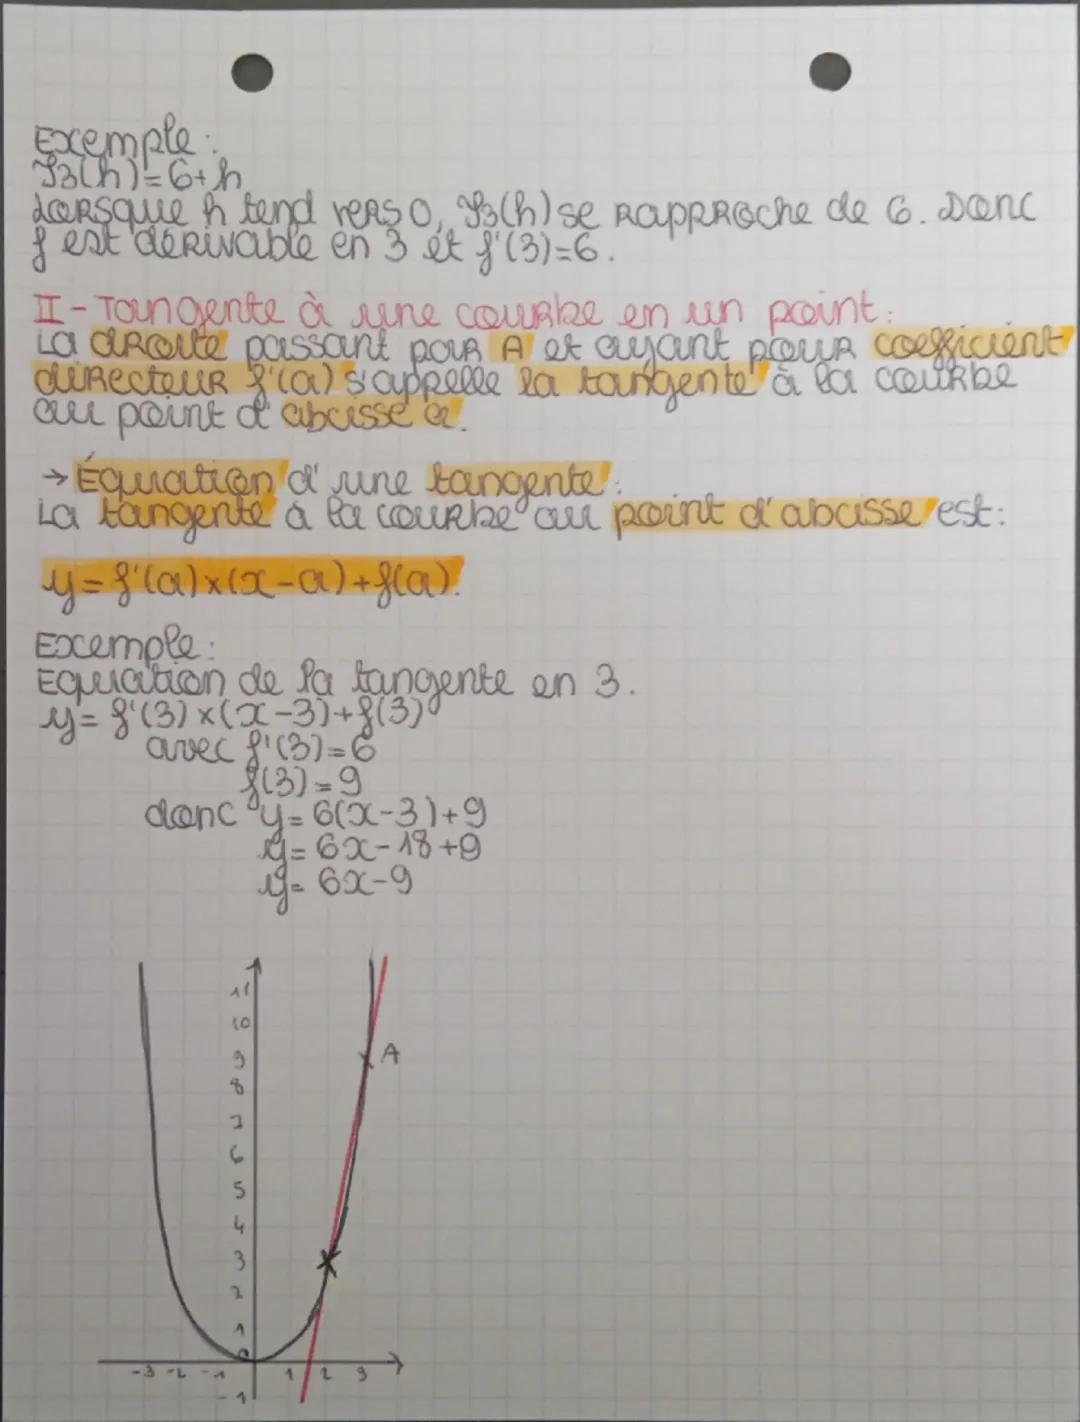 Exemple :
T3(h)=6+h
Lorsque h tend vers 0, T3(h) se rapproche de 6. Donc
f est dérivable en 3 et f'(3)=6.
II - Tangente à une courbe en un point :
La droite passant pour A et ayant pour coefficient
directeur f'(a) s'appelle la tangente à la courbe
au point d'abcisse a.
→ Équation d'une tangente :
La tangente à la courbe au point d'abcisse est :
y = f'(a)×(x-a)+f(a).
Exemple :
Equation de la tangente en 3.
y = f'(3)×(x-3)+f(3)
avec f'(3)=6
f(3)=9
donc y=6(x-3)+9
y=6x-18+9
y=6x-9
11
10
9 A
8
7
6
5
4
3
2
1
0
-3 -2 -1 1 2 3
-1